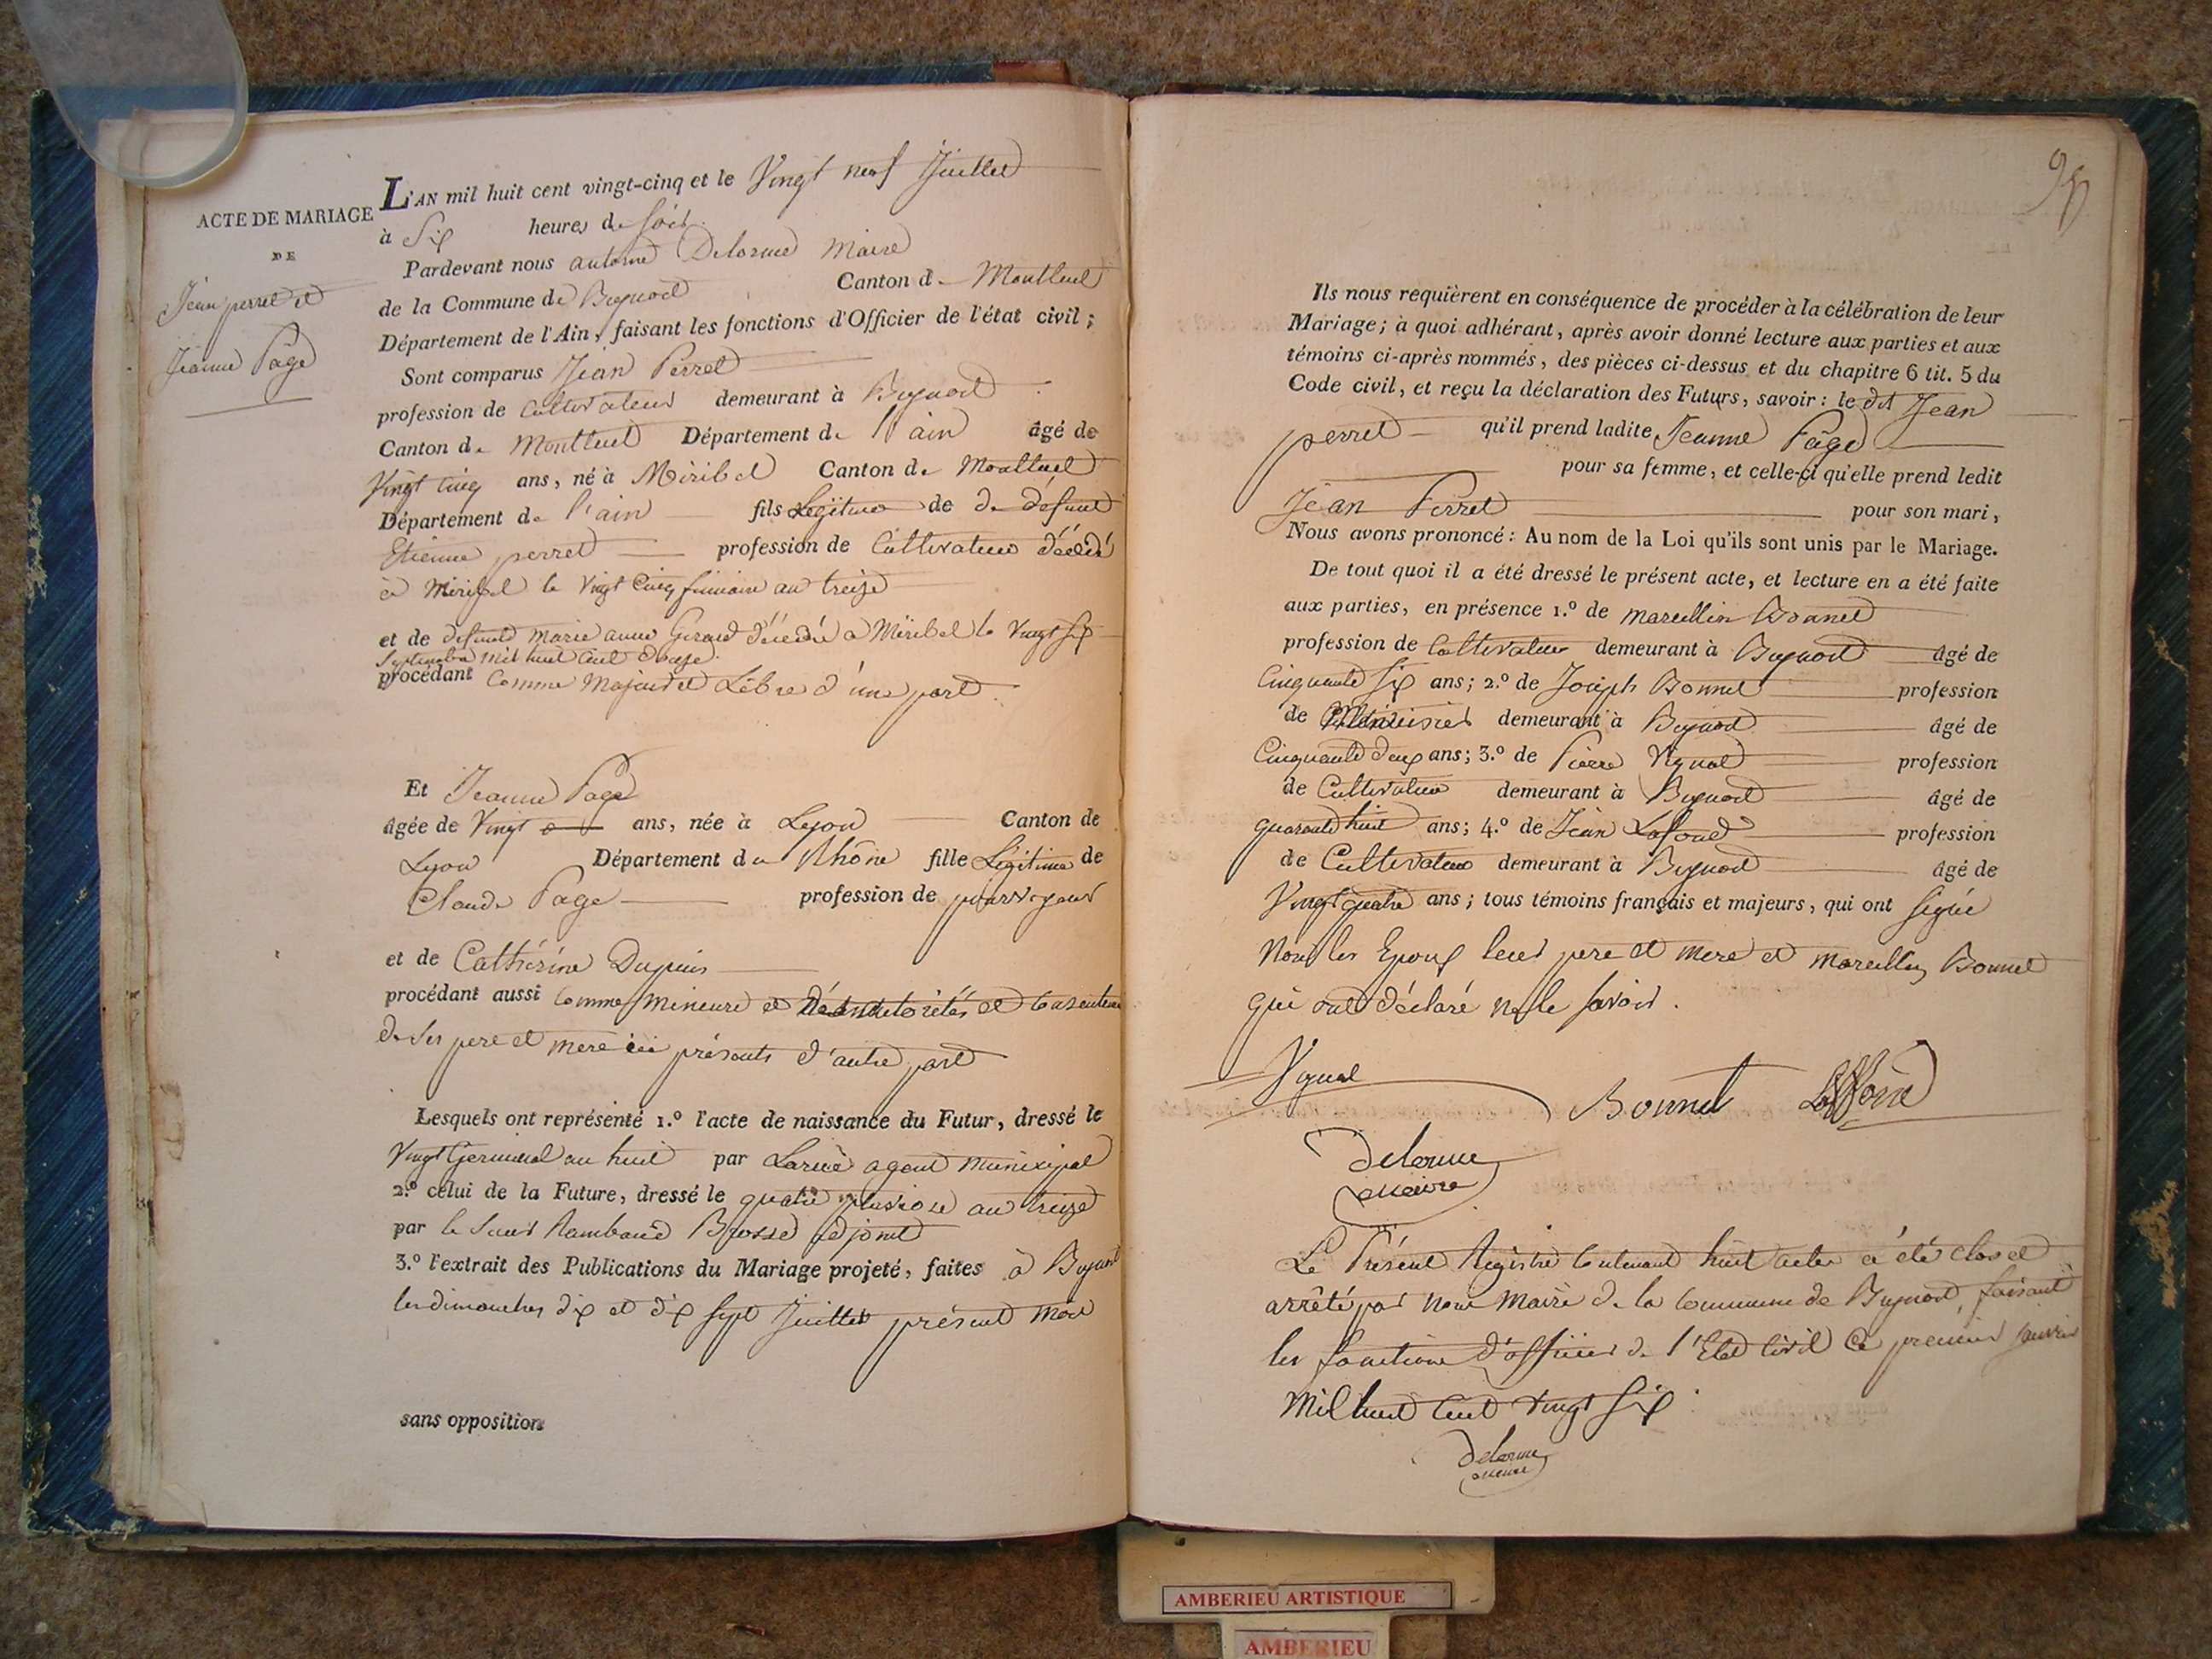 ACTE DE MARIAGE
DE
Jean perret et
Jeanne Page
L'AN mil huit cent vingt-cinq et le Vingt neuf Juillet
à Six heures du Soir
Pardevant nous antoine Delorme Maire
de la Commune de Beynost Canton de Montluel
Département de l'Ain, faisant les fonctions d'Officier de l'état civil;
Sont comparus Jean Perret
profession de Cultivateur demeurant à Beynost
Canton de Montluel Département de l'ain âgé de
Vingt cinq ans, né à Miribel Canton de Montluel
Département de l'ain fils Legitime de de défunt
Etienne perret profession de Cultivateur décédé
à Miribel le Vingt Cinq frimaire an treize
et de defunte Marie anne Girard décédée a Miribel le Vingt Six
Septembre Mil huit Cent douze
procédant Comme Majeur et Libre d'une part
Et Jeanne Page
âgée de Vingt ans, née à Lyon Canton de
Lyon Département du Rhône fille Légitime de
Claude Page profession de pourvoyeur
et de Cathérine Dupuis
procédant aussi Comme Mineure et
de Ses pere et mere ici présents d'autre part
Lesquels ont représenté 1.º l'acte de naissance du Futur, dressé le
Vingt Germinal an huit par Larué agent Municipal
2.º celui de la Future, dressé le quatre pluviose an treize
par le Sieur Rambaud Brosse adjoint
3.º l'extrait des Publications du Mariage projeté, faites à Beynost
les dimanches dix et dix Sept Juillet présent Mois
sans opposition
95
Ils nous requièrent en conséquence de procéder à la célébration de leur
Mariage; à quoi adhérant, après avoir donné lecture aux parties et aux
témoins ci-après nommés, des pièces ci-dessus et du chapitre 6 tit. 5 du
Code civil, et reçu la déclaration des Futurs, savoir: le dit Jean
perret qu'il prend ladite Jeanne Page
pour sa femme, et celle-ci qu'elle prend ledit
Jean Perret pour son mari,
Nous avons prononcé: Au nom de la Loi qu'ils sont unis par le Mariage.
De tout quoi il a été dressé le présent acte, et lecture en a été faite
aux parties, en présence 1.º de Marcellin Bonnet
profession de Cultivateur demeurant à Beynost âgé de
Cinquante Six ans; 2.º de Joseph Bonnet profession
de Menuisier demeurant à Beynost âgé de
Cinquante deux ans; 3.º de Pierre Vignal profession
de Cultivateur demeurant à Beynost âgé de
quarante huit ans; 4.º de Jean Lafond profession
de Cultivateur demeurant à Beynost âgé de
Vingt quatre ans; tous témoins français et majeurs, qui ont Signé
Non les Epoux leurs pere et mere et Marcellin Bonnet
qui ont déclaré ne le Savoir.
Vignal Bonnet Laffond
Delorme
maire
Le Présent Registre Contenant huit actes a été clos et
arrêté par Nous Maire de la Commune de Beynost, faisant
les fonctions d'officier de l'Etat Civil Ce premier Janvier
Mil huit Cent Vingt Six
Delorme
maire
AMBERIEU ARTISTIQUE
AMBERIEU